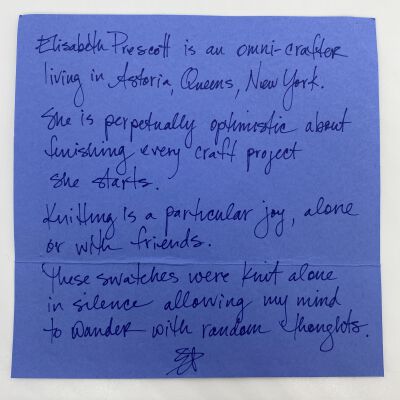 Elisabeth Prescott is an omni-crafter
living in Astoria, Queens, New York.
She is perpetually optimistic about
finishing every craft project
she starts.
Knitting is a particular joy, alone
or with friends.
These swatches were knit alone
in silence allowing my mind
to wander with random thoughts.